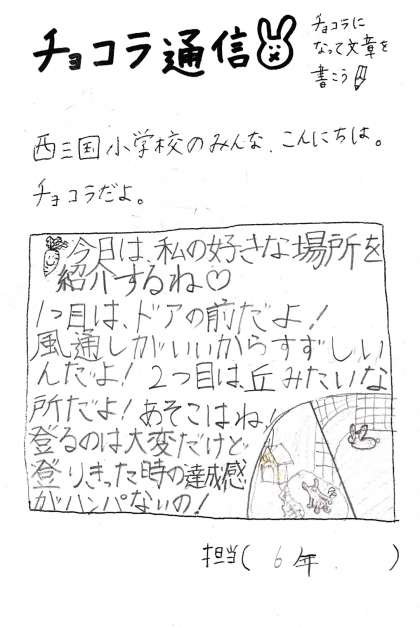 チョコラ通信
チョコラに
なって文章を
書こう
西三国小学校のみんな、こんにちは。
チョコラだよ。
今日は、私の好きな場所を
紹介するね♡
1つ目は、ドアの前だよ!
風通しがいいからすずしい
んだよ!2つ目は、丘みたいな
所だよ!あそこはね!
登るのは大変だけど
登りきった時の達成感
がハンパないの!
担当(6年. )